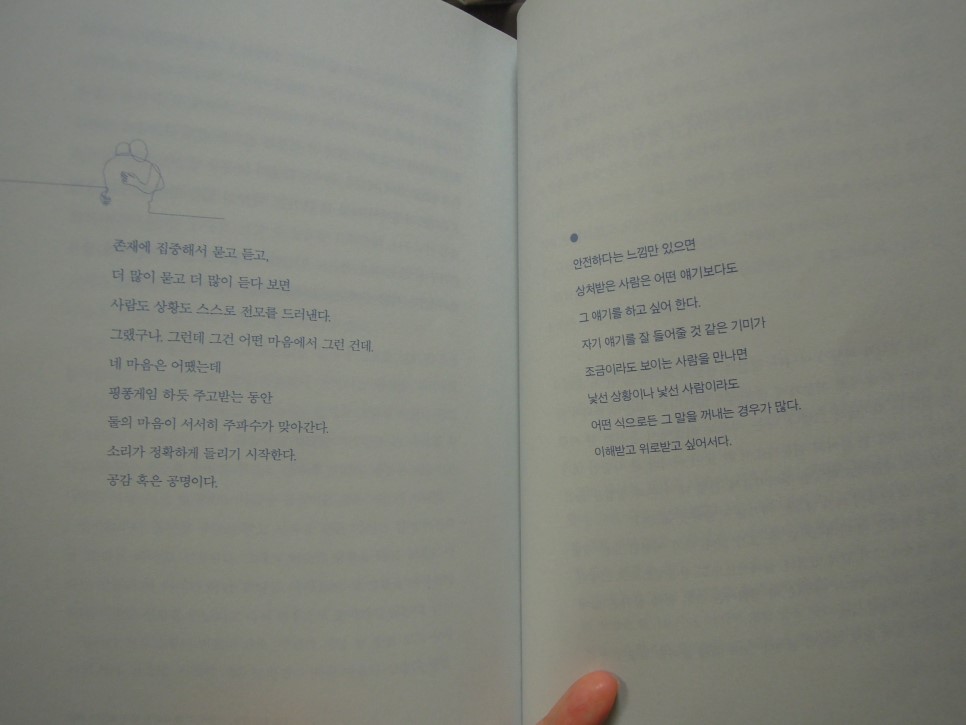 존재에 집중해서 묻고 듣고,
더 많이 묻고 더 많이 듣다 보면
사람도 상황도 스스로 전모를 드러낸다.
그랬구나. 그런데 그건 어떤 마음에서 그런 건데.
네 마음은 어땠는데
핑퐁게임 하듯 주고받는 동안
둘의 마음이 서서히 주파수가 맞아간다.
소리가 정확하게 들리기 시작한다.
공감 혹은 공명이다.
안전하다는 느낌만 있으면
상처받은 사람은 어떤 얘기보다도
그 얘기를 하고 싶어 한다.
자기 얘기를 잘 들어줄 것 같은 기미가
조금이라도 보이는 사람을 만나면
낯선 상황이나 낯선 사람이라도
어떤 식으로든 그 말을 꺼내는 경우가 많다.
이해받고 위로받고 싶어서다.